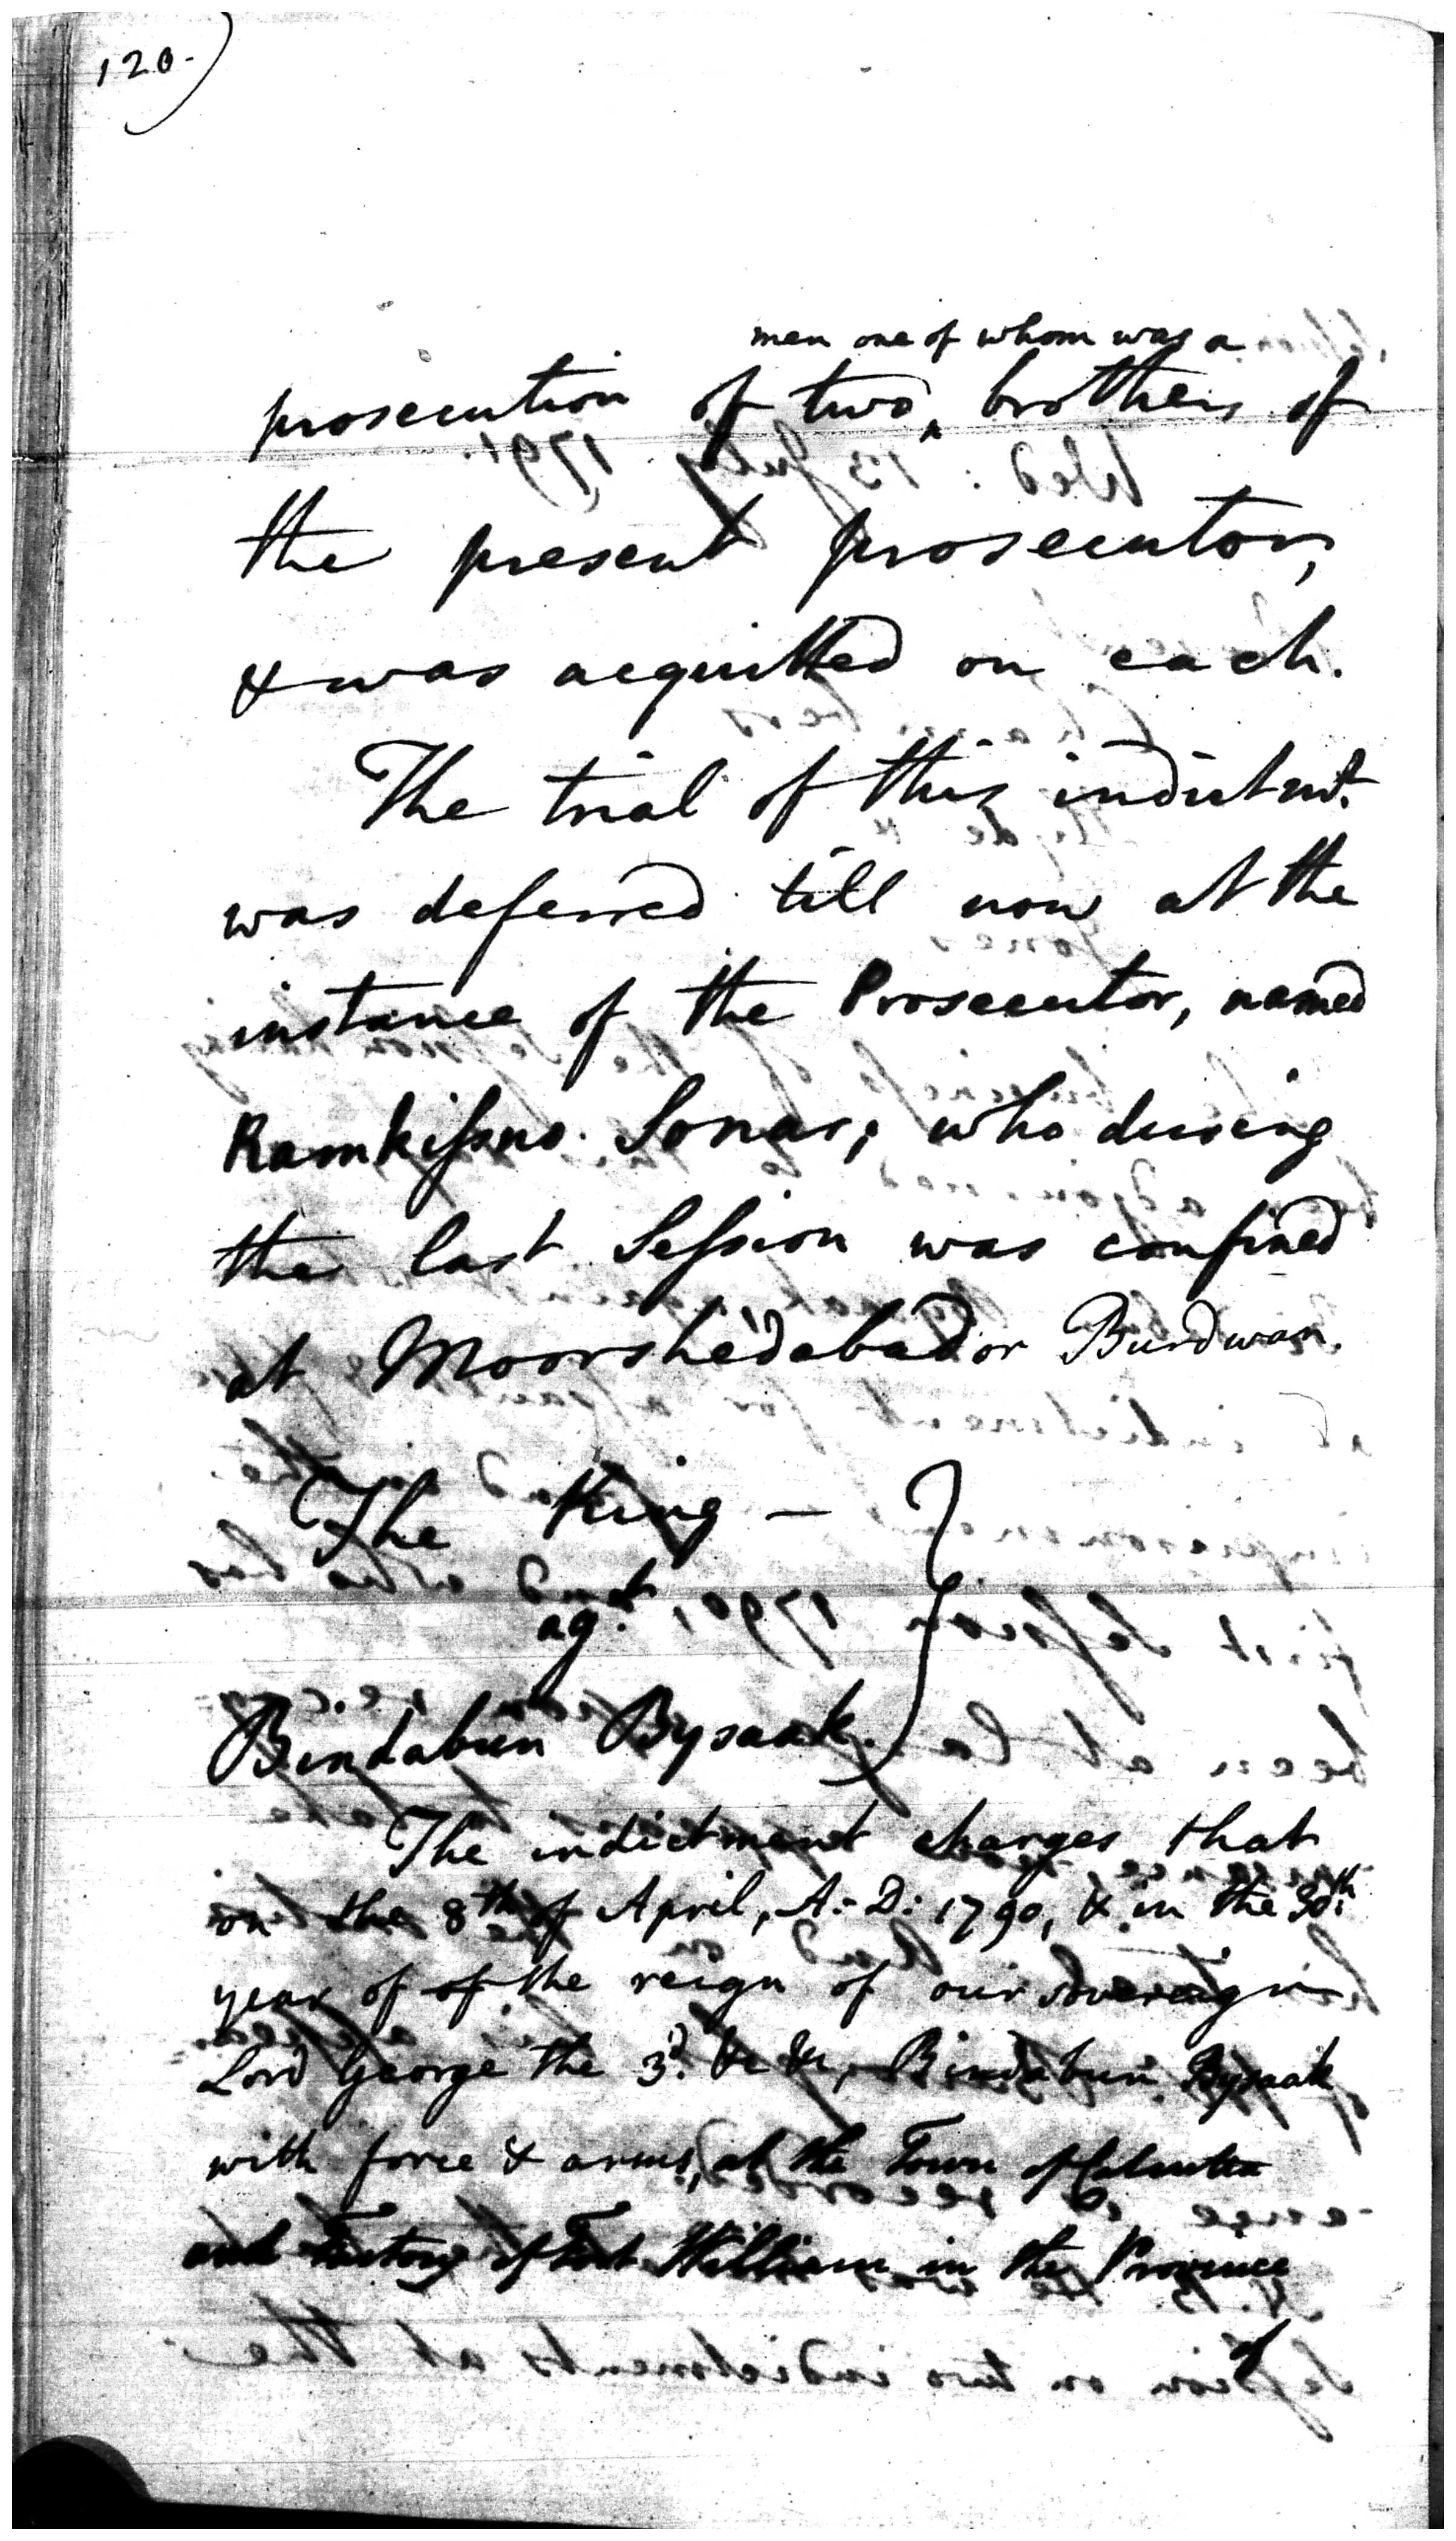 120.)
men one of whom was a
prosecution of two ^ brothers of
the present prosecutor,
& was acquitted on each.
The trial of this indictmt.
was deferred till now at the
instance of the Prosecutor, named
Ramkissno Sonar; who during
the last Session was confined
at Moorshedabad or Burdwan.
The King —
agt.
Bindabun Bysaak.
The indictment charges that
on the 8th of April, A: D: 1790, & in the 30th
year of of the reign of our sovereign
Lord George the 3d. &c &c, Bindabun Bysaak
with force & arms, at the Town of Calcutta
and Factory of Fort William in the Province
of